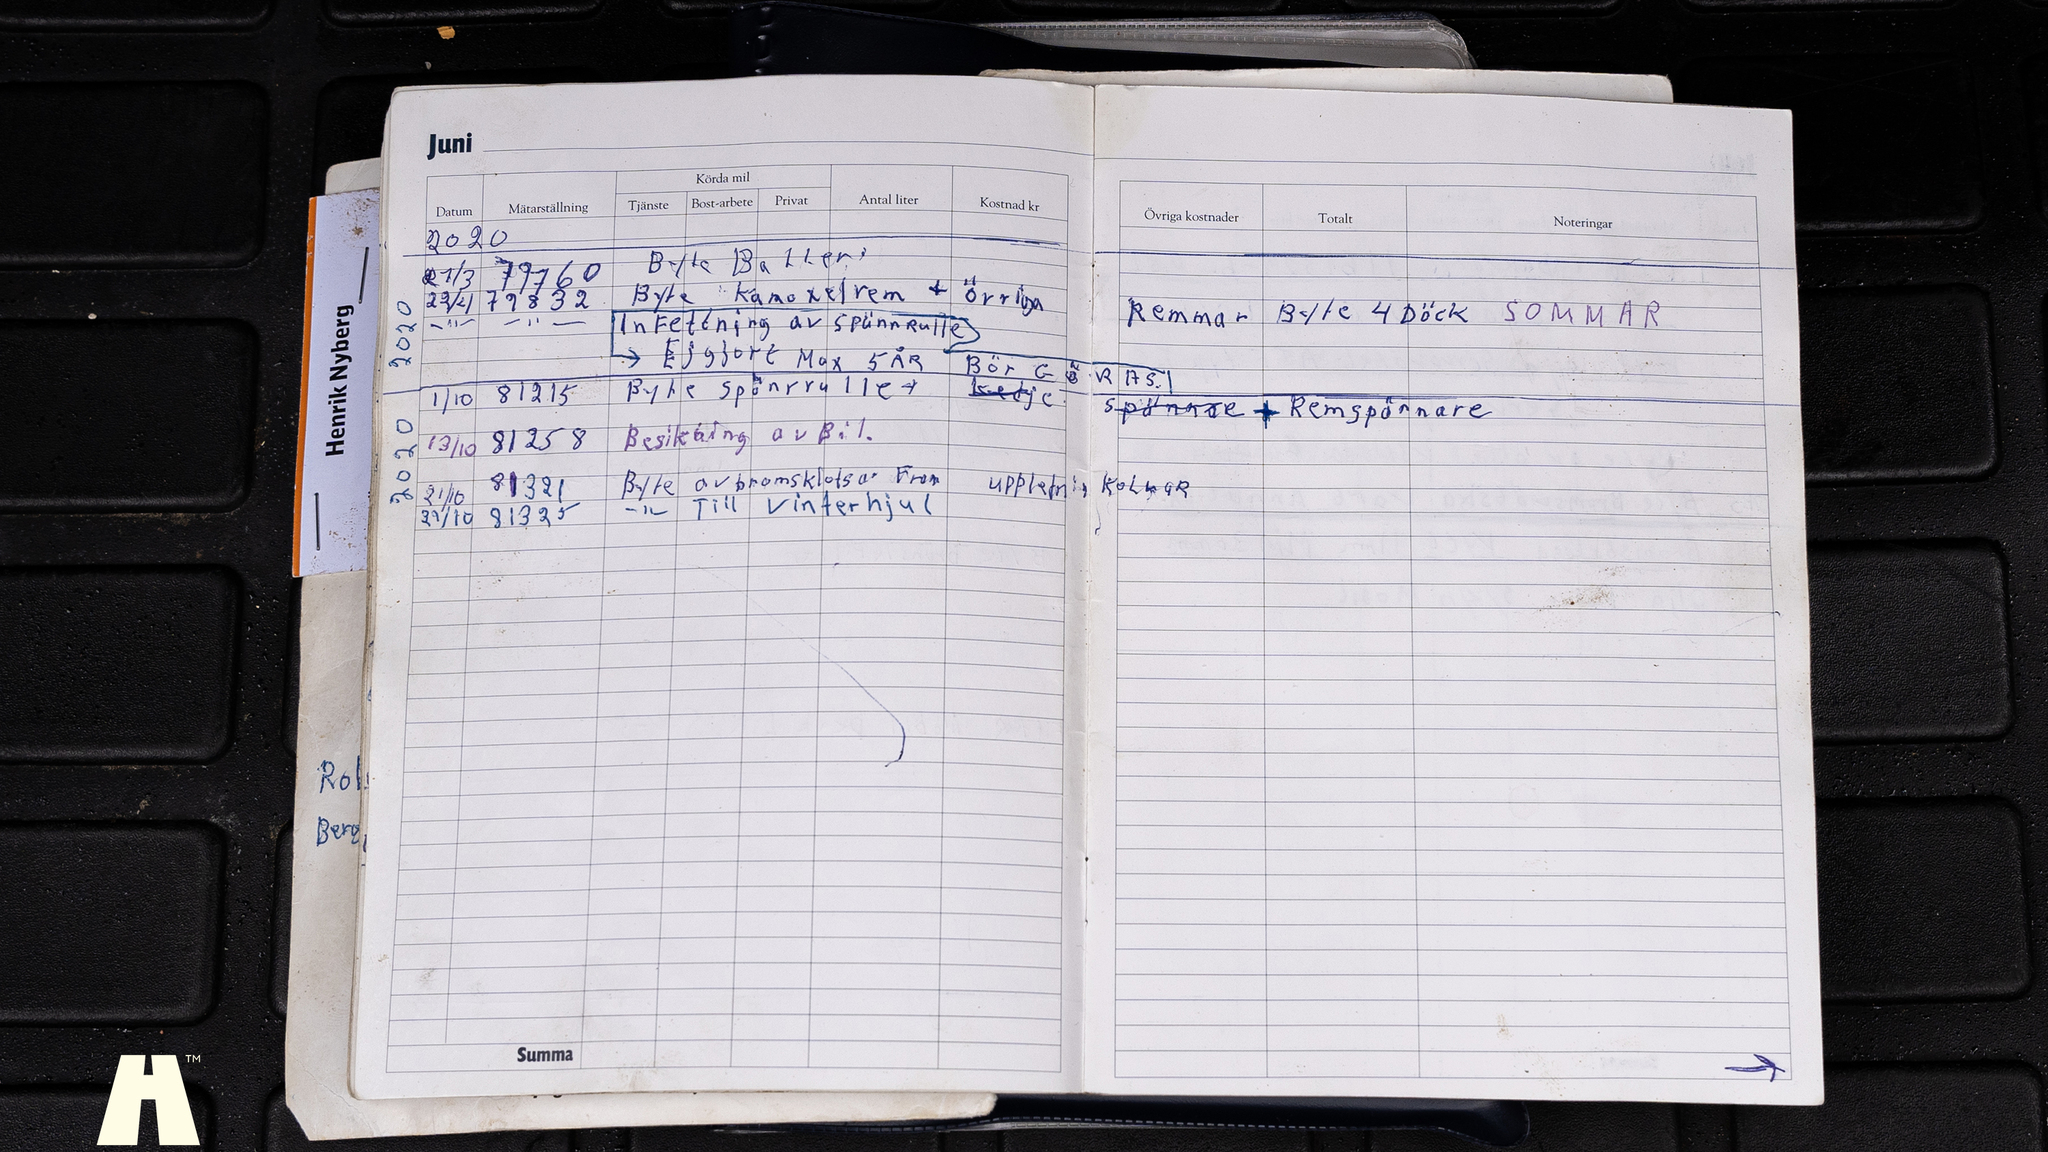 Juni
Datum Mätarställning Körda mil Tjänste Bost-arbete Privat Antal liter Kostnad kr Övriga kostnader Totalt Noteringar
2020
21/3 79760 Byte Batteri
79832 Byte kamaxelrem + övriga Remmar Byte 4 Däck SOMMAR
-"- -"- Infettning av spännRulle
→ Ej gjort Max 5 ÅR Bör GÖRAS!
1/10 81215 Byte spännrulle + Remspännare
13/10 81258 Besiktning av Bil.
21/10 81321 Byte av bromsklotsar Fram
81325 -"- Till Vinterhjul
2020
2020
Summa
Henrik Nyberg
Rol
Berg
H™